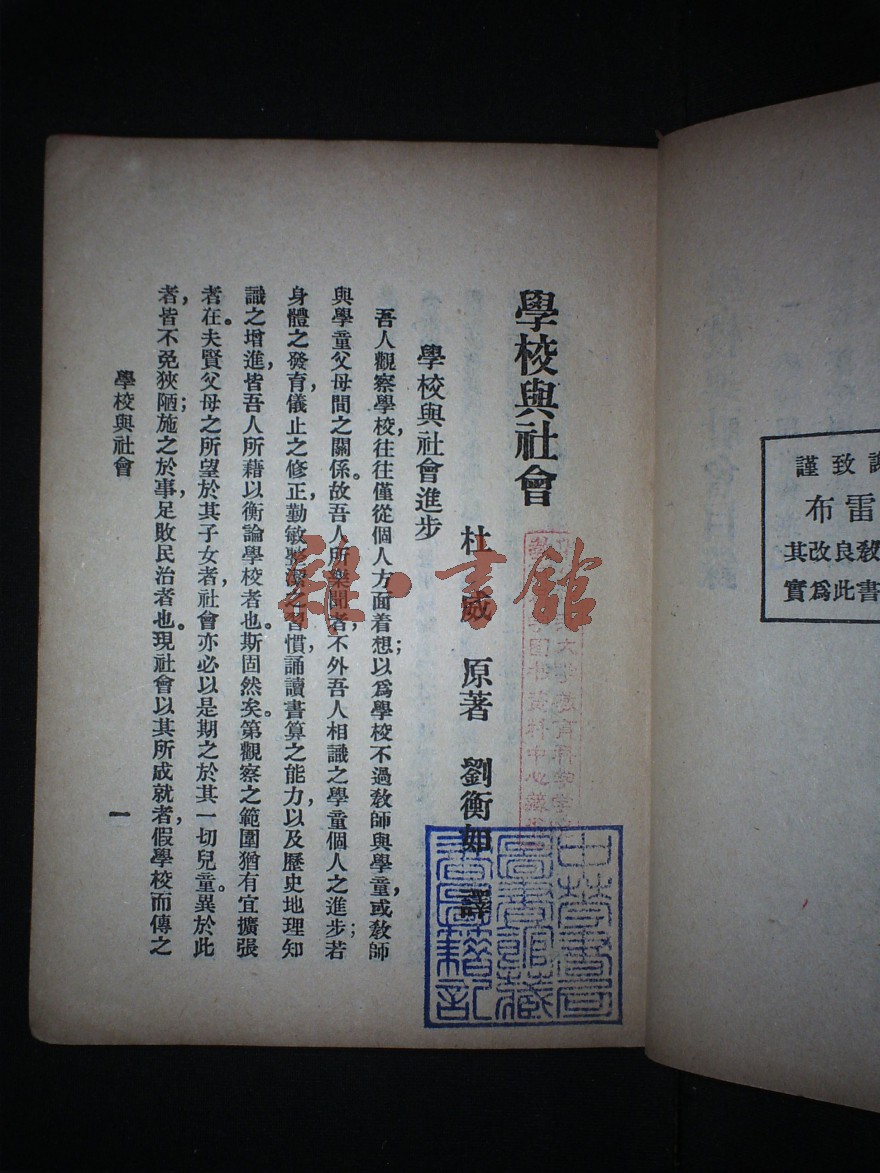 謹致
布雷
其改良教
實爲此書
學校與社會
杜威 原著 劉衡如 譯
學校與社會進步
吾人觀察學校，往往僅從個人方面着想；以爲學校不過教師與學童，或教師
與學童父母間之關係。故吾人所樂聞者，不外吾人相識之學童個人之進步；若
身體之發育，儀止之修正，勤敏整潔之習慣，誦讀書算之能力，以及歷史地理知
識之增進，皆吾人所藉以衡論學校者也。斯固然矣。第觀察之範圍，猶有宜擴張
者在。夫賢父母之所望於其子女者，社會亦必以是期之於其一切兒童。異於此
者，皆不免狹陋；施之於事，足敗民治者也。現社會以其所成就者，假學校而傳之
學校與社會
一
大学教育科学学
图书资料中心藏
中華書局
圖書館藏
書館